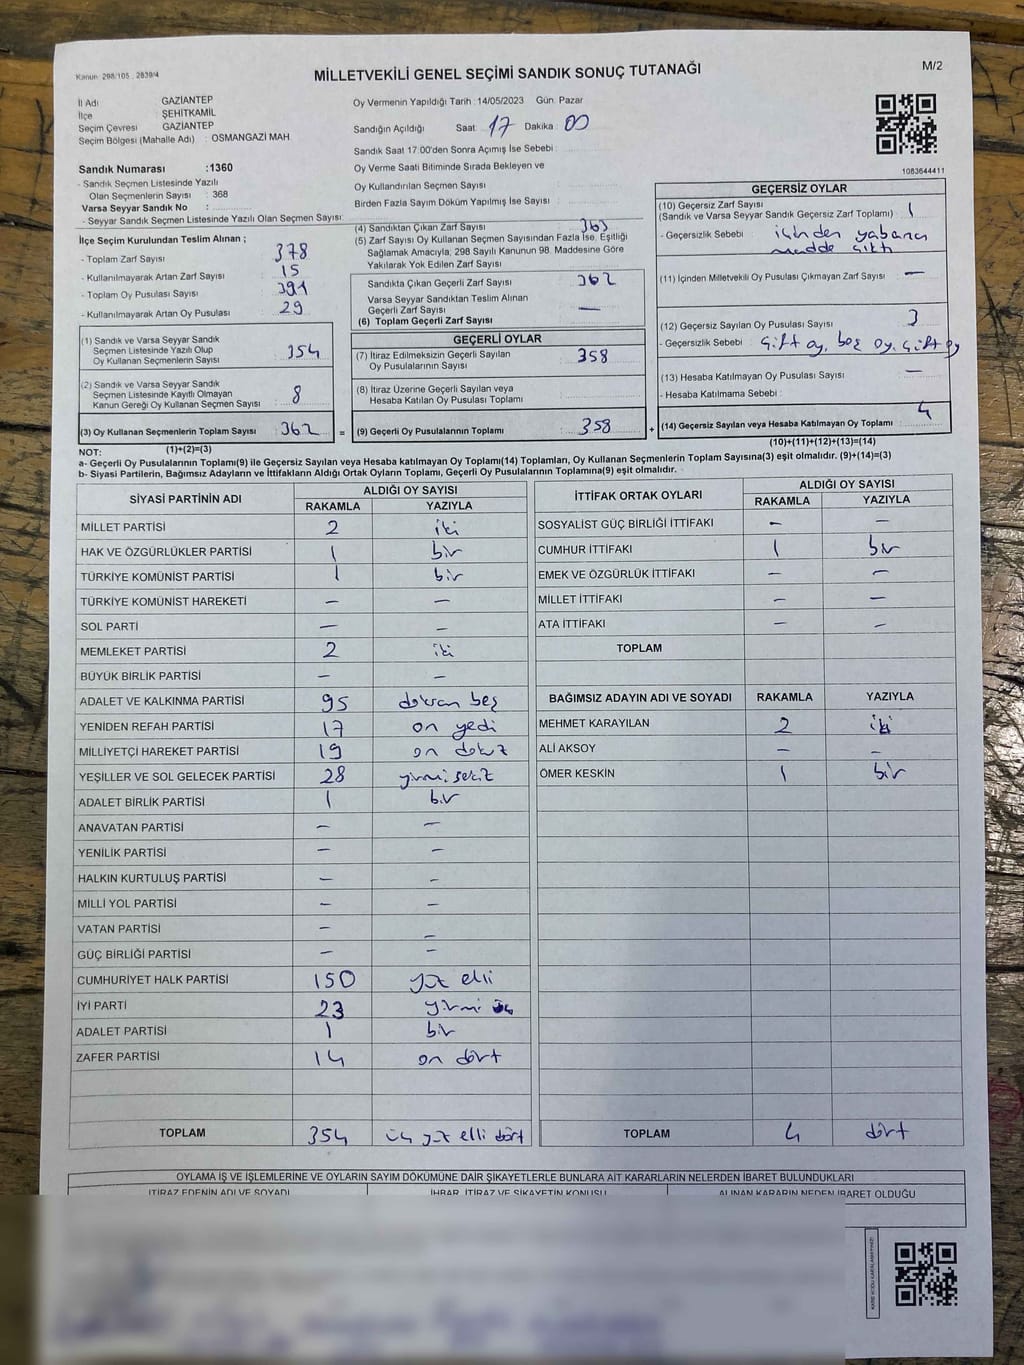 Kanun 298/105 , 2839/4
MİLLETVEKİLİ GENEL SEÇİMİ SANDIK SONUÇ TUTANAĞI
M/2
İl Adı GAZİANTEP
İlçe ŞEHİTKAMİL
Seçim Çevresi GAZİANTEP
Seçim Bölgesi (Mahalle Adı) : OSMANGAZİ MAH.
Sandık Numarası :1360
- Sandık Seçmen Listesinde Yazılı
Olan Seçmenlerin Sayısı : 368
Varsa Seyyar Sandık No :
- Seyyar Sandık Seçmen Listesinde Yazılı Olan Seçmen Sayısı:
Oy Vermenin Yapıldığı Tarih : 14/05/2023 Gün: Pazar
Sandığın Açıldığı Saat: 17 Dakika: 00
Sandık Saat 17:00'den Sonra Açımış İse Sebebi :
Oy Verme Saati Bitiminde Sırada Bekleyen ve
Oy Kullandırılan Seçmen Sayısı :
Birden Fazla Sayım Döküm Yapılmış İse Sayısı :
1083644411
İlçe Seçim Kurulundan Teslim Alınan ;
- Toplam Zarf Sayısı : 378
- Kullanılmayarak Artan Zarf Sayısı : 15
- Toplam Oy Pusulası Sayısı : 391
- Kullanılmayarak Artan Oy Pusulası : 29
(1) Sandık ve Varsa Seyyar Sandık
Seçmen Listesinde Yazılı Olup
Oy Kullanan Seçmenlerin Sayısı : 354
(2) Sandık ve Varsa Seyyar Sandık
Seçmen Listesinde Kayıtlı Olmayan
Kanun Gereği Oy Kullanan Seçmen Sayısı : 8
(3) Oy Kullanan Seçmenlerin Toplam Sayısı : 362 =
(4) Sandıktan Çıkan Zarf Sayısı : 363
(5) Zarf Sayısı Oy Kullanan Seçmen Sayısından Fazla İse, Eşitliği
Sağlamak Amacıyla, 298 Sayılı Kanunun 98. Maddesine Göre
Yakılarak Yok Edilen Zarf Sayısı :
Sandıkta Çıkan Geçerli Zarf Sayısı : 362
Varsa Seyyar Sandıktan Teslim Alınan
Geçerli Zarf Sayısı : —
(6) Toplam Geçerli Zarf Sayısı :
GEÇERLİ OYLAR
(7) İtiraz Edilmeksizin Geçerli Sayılan
Oy Pusulalarının Sayısı : 358
(8) İtiraz Üzerine Geçerli Sayılan veya
Hesaba Katılan Oy Pusulası Toplamı :
(9) Geçerli Oy Pusulalarının Toplamı : 358 +
GEÇERSİZ OYLAR
(10) Geçersiz Zarf Sayısı
(Sandık ve Varsa Seyyar Sandık Geçersiz Zarf Toplamı) : 1
- Geçersizlik Sebebi : içinden yabancı
madde çıktı
(11) İçinden Milletvekili Oy Pusulası Çıkmayan Zarf Sayısı : —
(12) Geçersiz Sayılan Oy Pusulası Sayısı : 3
- Geçersizlik Sebebi : çift oy, boş oy, çift oy
(13) Hesaba Katılmayan Oy Pusulası Sayısı : —
- Hesaba Katılmama Sebebi :
(14) Geçersiz Sayılan veya Hesaba Katılmayan Oy Toplamı : 4
NOT: (1)+(2)=(3)
(10)+(11)+(12)+(13)=(14)
a- Geçerli Oy Pusulalarının Toplamı(9) ile Geçersiz Sayılan veya Hesaba katılmayan Oy Toplamı(14) Toplamları, Oy Kullanan Seçmenlerin Toplam Sayısına(3) eşit olmalıdır. (9)+(14)=(3)
b- Siyasi Partilerin, Bağımsız Adayların ve İttifakların Aldığı Ortak Oyların Toplamı, Geçerli Oy Pusulalarının Toplamına(9) eşit olmalıdır.
SİYASİ PARTİNİN ADI ALDIĞI OY SAYISI
RAKAMLA YAZIYLA
MİLLET PARTİSİ 2 iki
HAK VE ÖZGÜRLÜKLER PARTİSİ 1 bir
TÜRKİYE KOMÜNİST PARTİSİ 1 bir
TÜRKİYE KOMÜNİST HAREKETİ — —
SOL PARTİ — —
MEMLEKET PARTİSİ 2 iki
BÜYÜK BİRLİK PARTİSİ — —
ADALET VE KALKINMA PARTİSİ 95 doksan beş
YENİDEN REFAH PARTİSİ 17 on yedi
MİLLİYETÇİ HAREKET PARTİSİ 19 on dokuz
YEŞİLLER VE SOL GELECEK PARTİSİ 28 yirmi sekiz
ADALET BİRLİK PARTİSİ 1 bir
ANAVATAN PARTİSİ — —
YENİLİK PARTİSİ — —
HALKIN KURTULUŞ PARTİSİ — —
MİLLİ YOL PARTİSİ — —
VATAN PARTİSİ — —
GÜÇ BİRLİĞİ PARTİSİ — —
CUMHURİYET HALK PARTİSİ 150 yüz elli
İYİ PARTİ 23 yirmi üç
ADALET PARTİSİ 1 bir
ZAFER PARTİSİ 14 on dört
TOPLAM 354 üç yüz elli dört
İTTİFAK ORTAK OYLARI ALDIĞI OY SAYISI
RAKAMLA YAZIYLA
SOSYALİST GÜÇ BİRLİĞİ İTTİFAKI — —
CUMHUR İTTİFAKI 1 bir
EMEK VE ÖZGÜRLÜK İTTİFAKI — —
MİLLET İTTİFAKI — —
ATA İTTİFAKI — —
TOPLAM
BAĞIMSIZ ADAYIN ADI VE SOYADI RAKAMLA YAZIYLA
MEHMET KARAYILAN 2 iki
ALİ AKSOY — —
ÖMER KESKİN 1 bir
TOPLAM 4 dört
OYLAMA İŞ VE İŞLEMLERİNE VE OYLARIN SAYIM DÖKÜMÜNE DAİR ŞİKAYETLERLE BUNLARA AİT KARARLARIN NELERDEN İBARET BULUNDUKLARI
İTİRAZ EDENİN ADI VE SOYADI İHBAR, İTİRAZ VE ŞİKAYETİN KONUSU ALINAN KARARIN NEDEN İBARET OLDUĞU